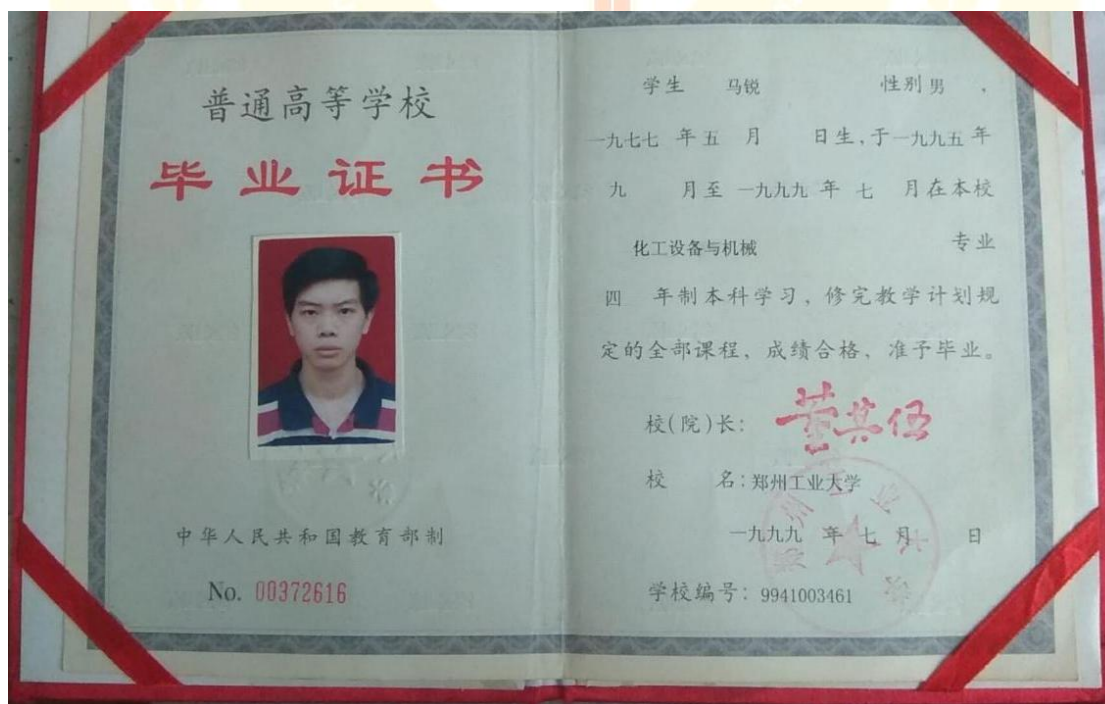 普通高等学校
毕业证书
中华人民共和国教育部制
No. 00372616
学生 马锐 性别 男 ,
一九七七 年 五 月 日生,于 一九九五 年
九 月至 一九九九 年 七 月在本校
化工设备与机械 专业
四 年制本科学习,修完教学计划规
定的全部课程,成绩合格,准予毕业。
校(院)长: 董其伍
校 名:郑州工业大学
一九九九 年 七 月 日
学校编号: 9941003461
郑州工业大学